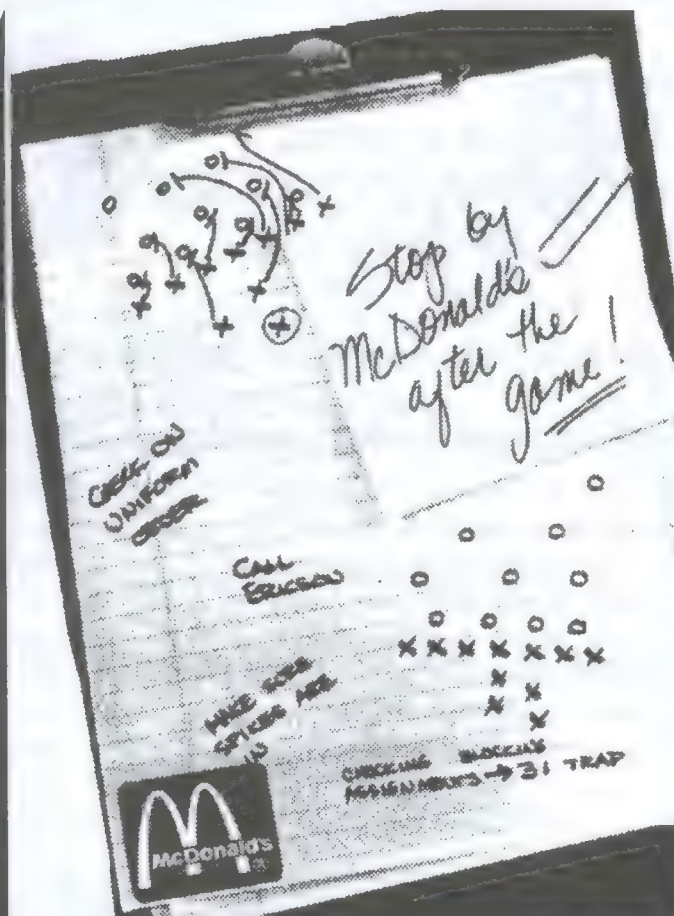 Stop by
McDonald's
after the
game!
CHECK ON
UNIFORM
ORDER
CALL
ERICSON
MAKE SURE
SPIKES ARE
IN
CHECKING BLOCKING
ASSIGNMENTS → 31 TRAP
McDonald's